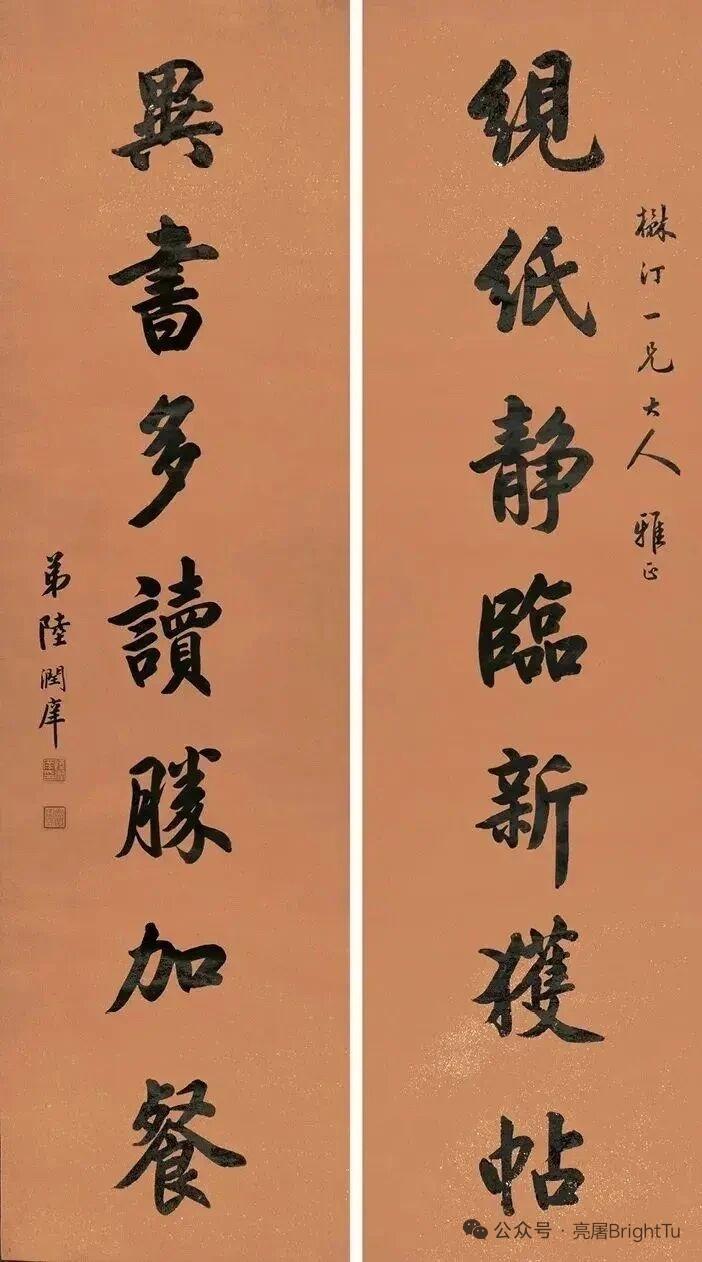 汀一兄大人 雅正
絸紙静臨新獲帖
異書多讀勝加餐
弟陸潤庠
公众号 · 亮屠BrightTu